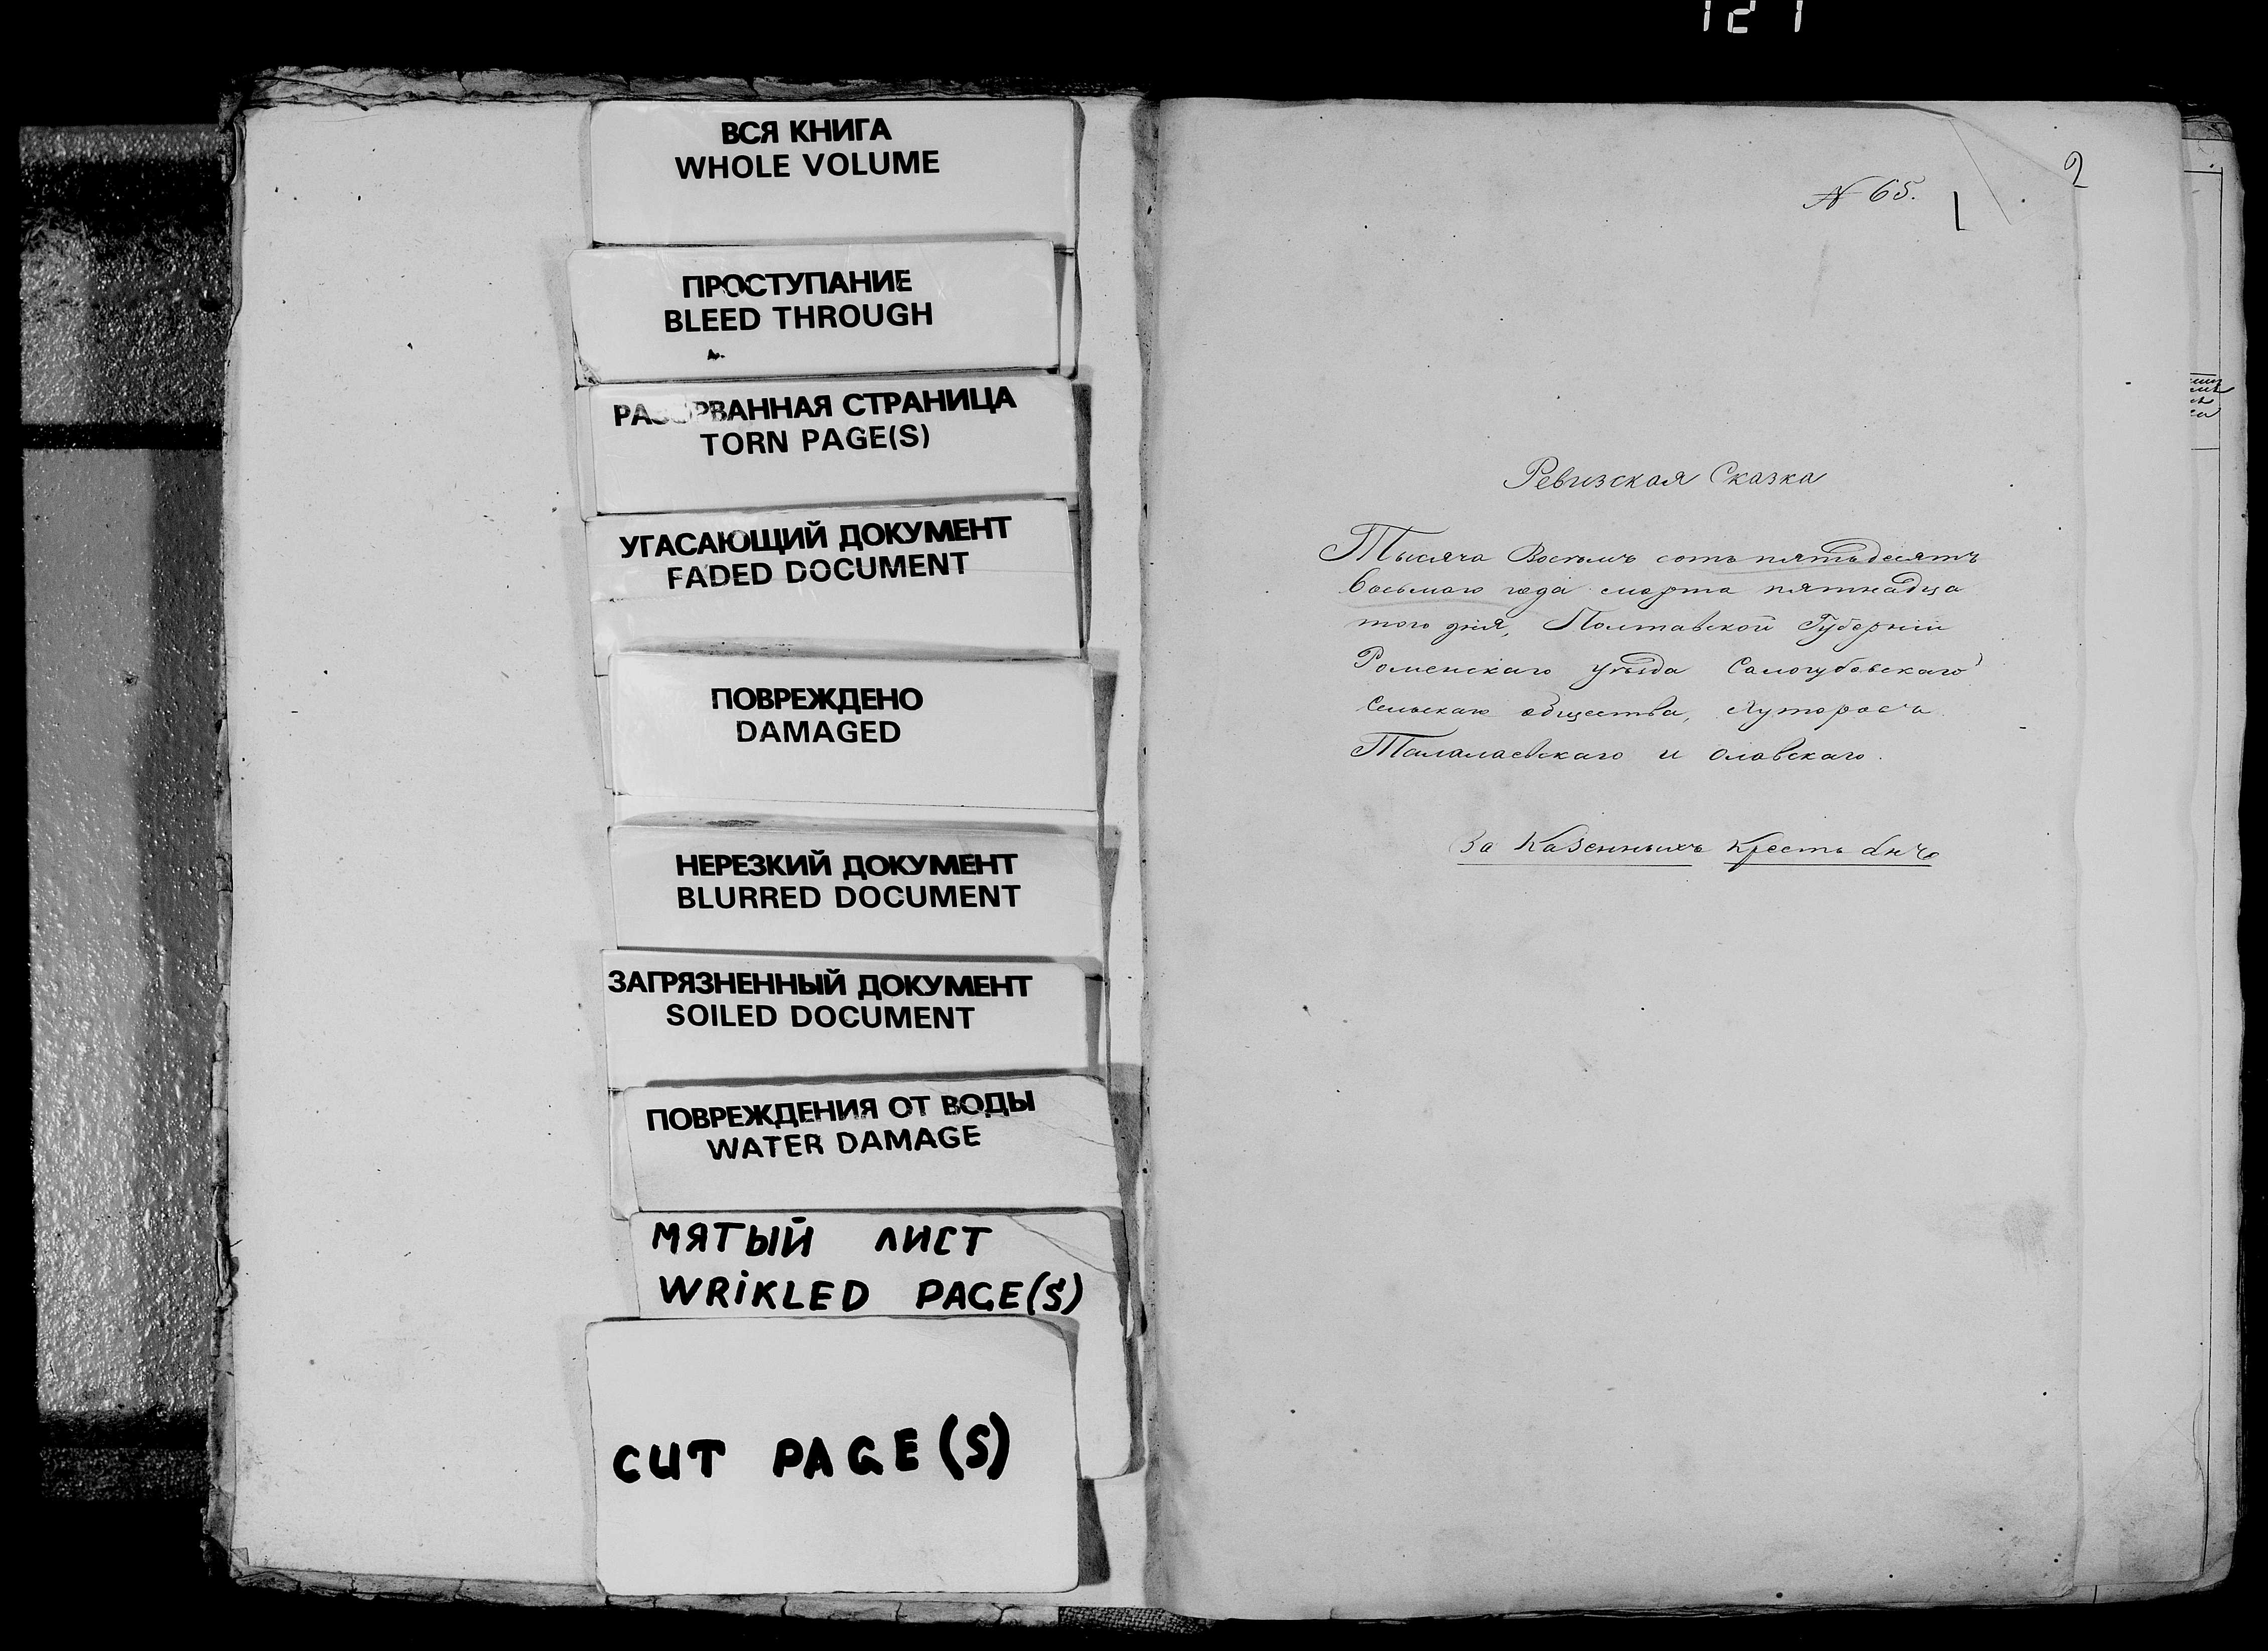 121
ВСЯ КНИГА
WHOLE VOLUME
ПРОСТУПАНИЕ
BLEED THROUGH
РАЗОРВАННАЯ СТРАНИЦА
TORN PAGE(S)
УГАСАЮЩИЙ ДОКУМЕНТ
FADED DOCUMENT
ПОВРЕЖДЕНО
DAMAGED
НЕРЕЗКИЙ ДОКУМЕНТ
BLURRED DOCUMENT
ЗАГРЯЗНЕННЫЙ ДОКУМЕНТ
SOILED DOCUMENT
ПОВРЕЖДЕНИЯ ОТ ВОДЫ
WATER DAMAGE
МЯТЫЙ ЛИСТ
WRiKLED PAGE(S)
CUT PAGE(S)
2
№ 65.
1
Ревизская Сказка
Тысяча Восемъ сотъ пятьдесятъ
восьмого года марта пятнадца
того дня, Полтавской Губерніи
Роменскаго уѣзда Самогубовскаго
Сельскаго общества, хутора
Талалаевскаго и
За Казенныхъ Крестьянъ